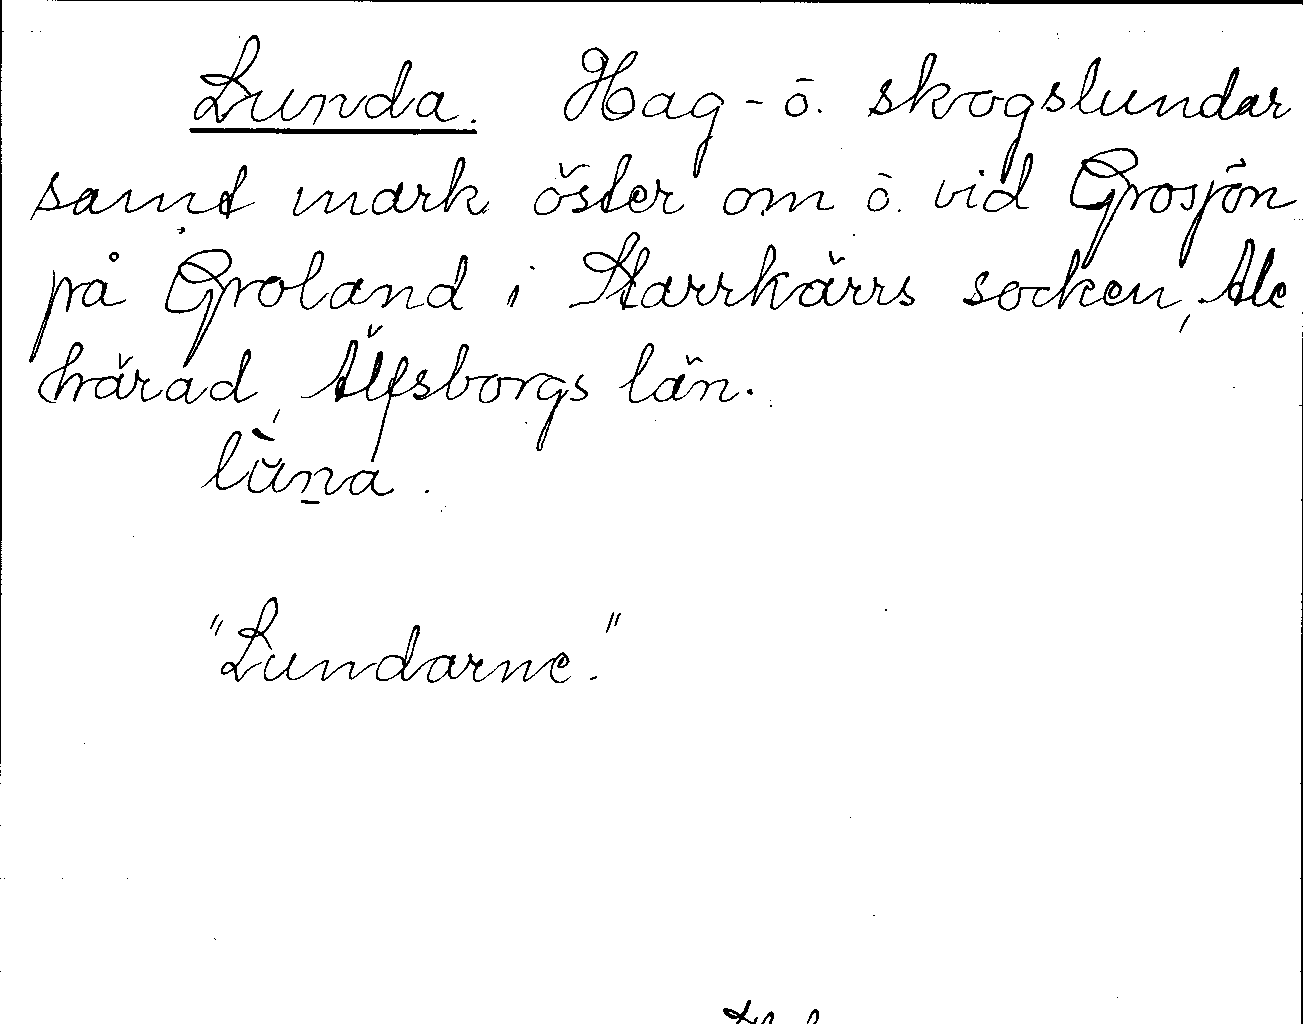 Lunda. Hag- ö. skogslundar
samt mark öster om ö. vid Grosjön
på Groland i Starrkärrs socken, Ale
härad, Älfsborgs län.
lùṉa.
"Lundarne."